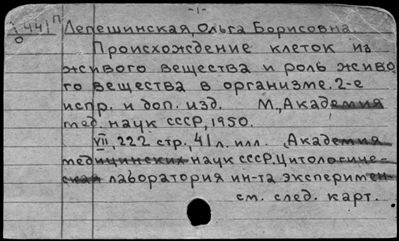 -1-
441 п
0
Лепешинская, Ольга Борисовна
Происхождение клеток из
живого вещества и роль живо
го вещества в организме. 2-е
испр. и доп. изд. М., Академия
мед. наук СССР, 1950.
VII, 222 стр., 41 л. илл. Академия
медицинских наук СССР. Цитологиче-
ская лаборатория ин-та эксперимен-
см. след. карт.